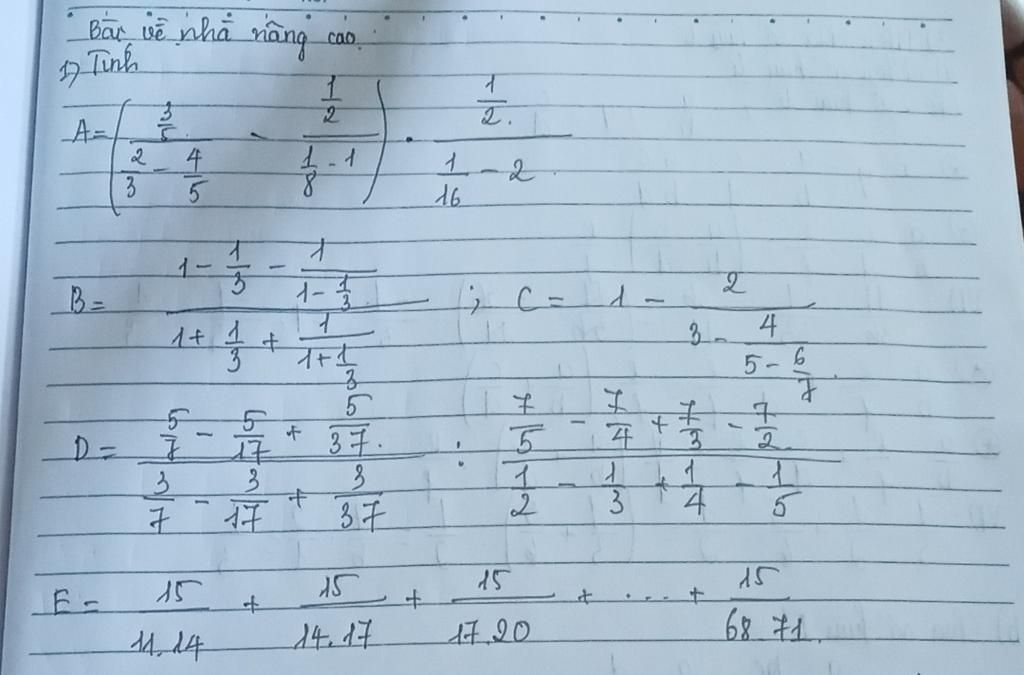 Bài về nhà nâng cao.
1) Tính
A = ( (3/5)/(2/3 - 4/5) - (1/2)/(1/8 - 1) ) . (1/2)/(1/16 - 2)
B = (1 - 1/3 - 1/(1 - 1/3))/(1 + 1/3 + 1/(1 + 1/3)) ; C = 1 - 2/(3 - 4/(5 - 6/7))
D = (5/7 - 5/17 + 5/37)/(3/7 - 3/17 + 3/37) : (7/5 - 7/4 + 7/3 - 7/2)/(1/2 - 1/3 + 1/4 - 1/5)
E = 15/11.14 + 15/14.17 + 15/17.20 + .... + 15/68.71